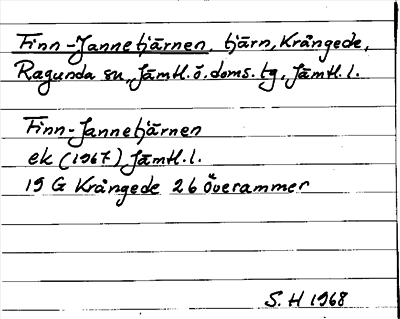 Finn-Jannetjärnen, tjärn, Krångede,
Ragunda sn, Jämtl. ö. doms. tg, Jämtl. l.
Finn-Jannetjärnen
ek (1967) Jämtl. l.
19 G Krångede 26 Överammer
S. H 1968